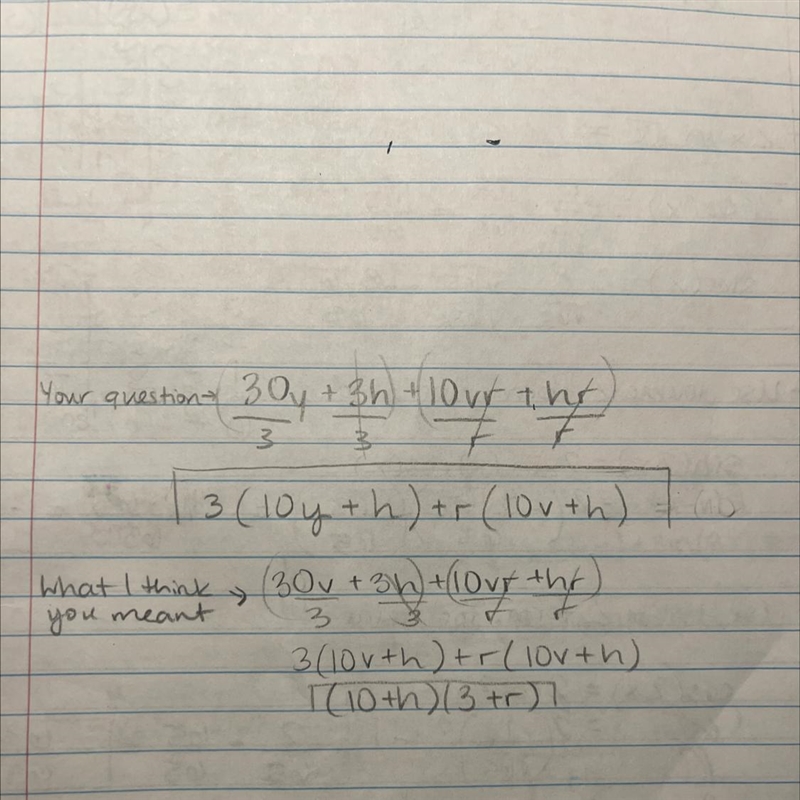 Your question → (30y + 3h) + (10vr + hr)
3 3 r r
3(10y + h) + r(10v + h)
What I think you meant → (30v + 3h) + (10vr + hr)
3 3 r r
3(10v+h) + r(10v+h)
(10+h)(3+r)